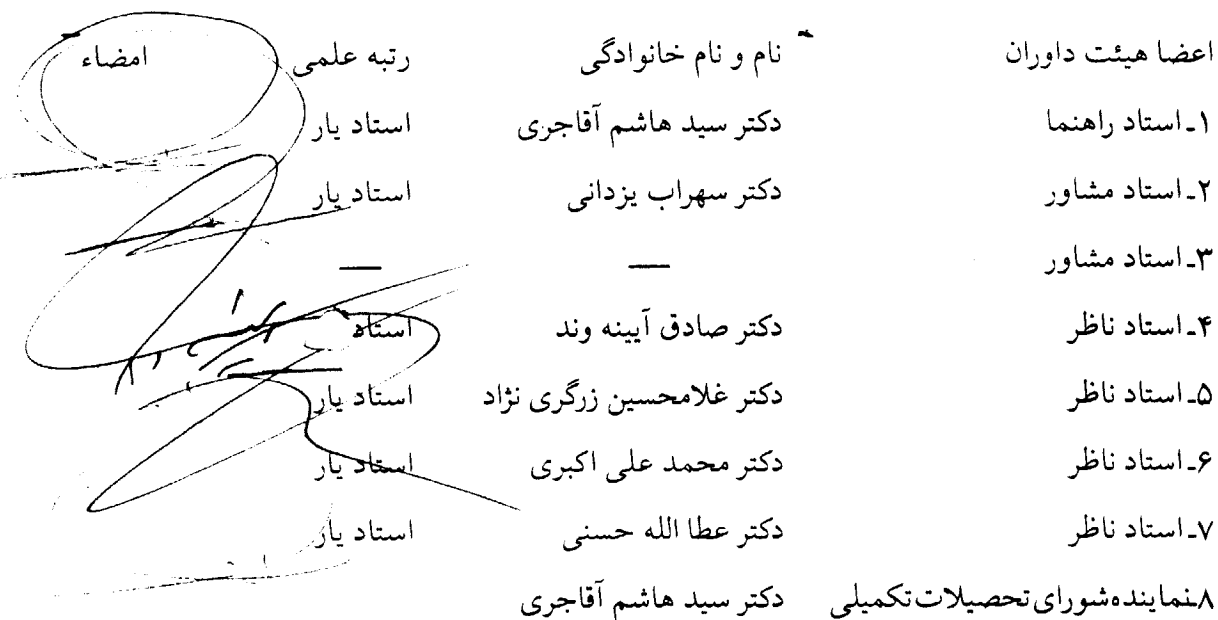 اعضا هیئت داوران نام و نام خانوادگی رتبه علمی امضاء
۱ـ استاد راهنما دکتر سید هاشم آقاجری استاد یار
۲ـ استاد مشاور دکتر سهراب یزدانی استاد یار
۳ـ استاد مشاور — —
۴ـ استاد ناظر دکتر صادق آیینه وند استاد
۵ـ استاد ناظر دکتر غلامحسین زرگری نژاد استاد یار
۶ـ استاد ناظر دکتر محمد علی اکبری استاد یار
۷ـ استاد ناظر دکتر عطا الله حسنی استاد یار
۸ـنماینده شورای تحصیلات تکمیلی دکتر سید هاشم آقاجری